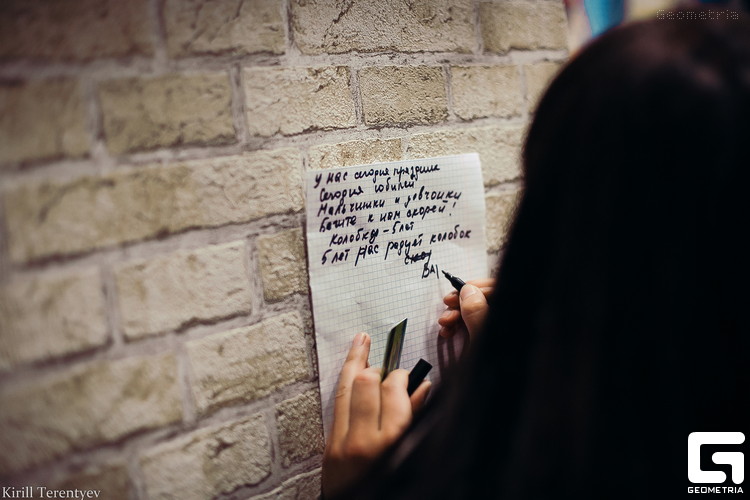 Geometria
у нас сегодня праздник
Сегодня юбилей
Мальчишки и девчонки
Бегите к нам скорей!
Колобку - 5 лет
5 лет нас радует колобок
ВА
Kirill Terentyev
GEOMETRIA